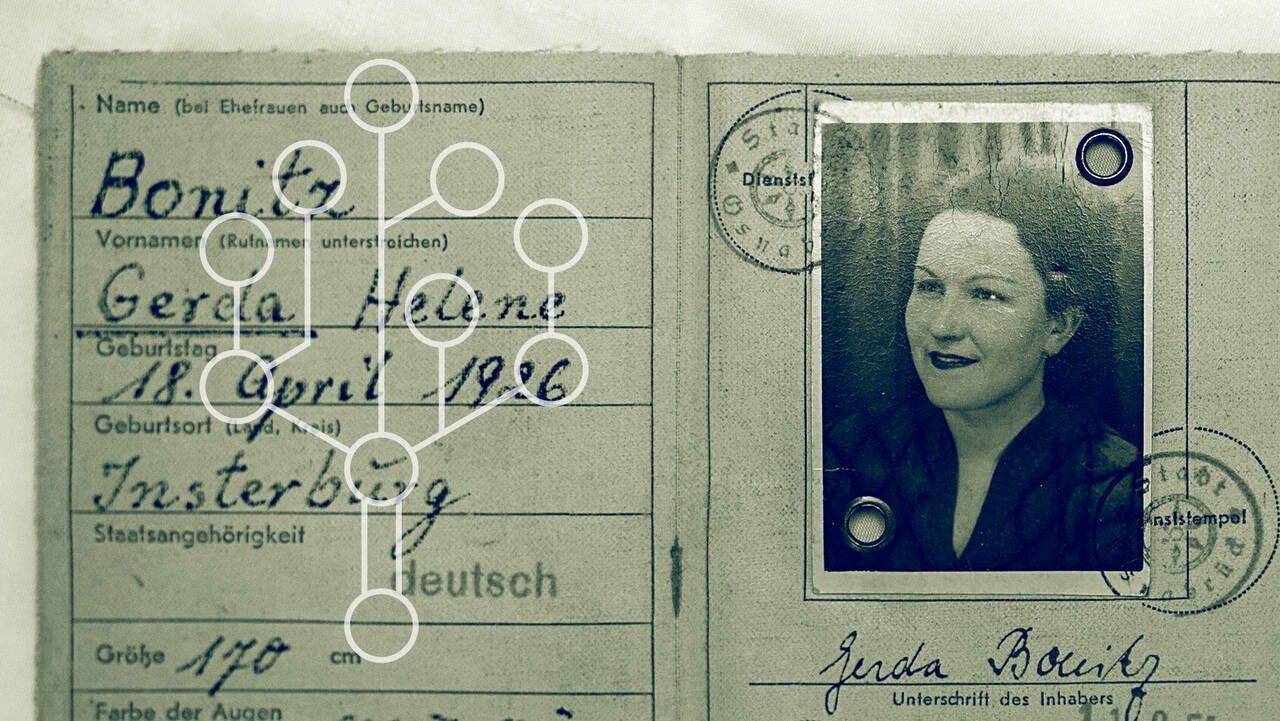 Name (bei Ehefrauen auch Geburtsname)
Bonitz
Vornamen (Rufnamen unterstreichen)
Gerda Helene
Geburtstag
18. April 1926
Geburtsort (Land, Kreis)
Insterburg
Staatsangehörigkeit
deutsch
Größe 170 cm
Farbe der Augen
Stadt
Dienstst
Osnabrü
Stadt
nststempel
Osnabrück
Gerda Bonitz
Unterschrift des Inhabers